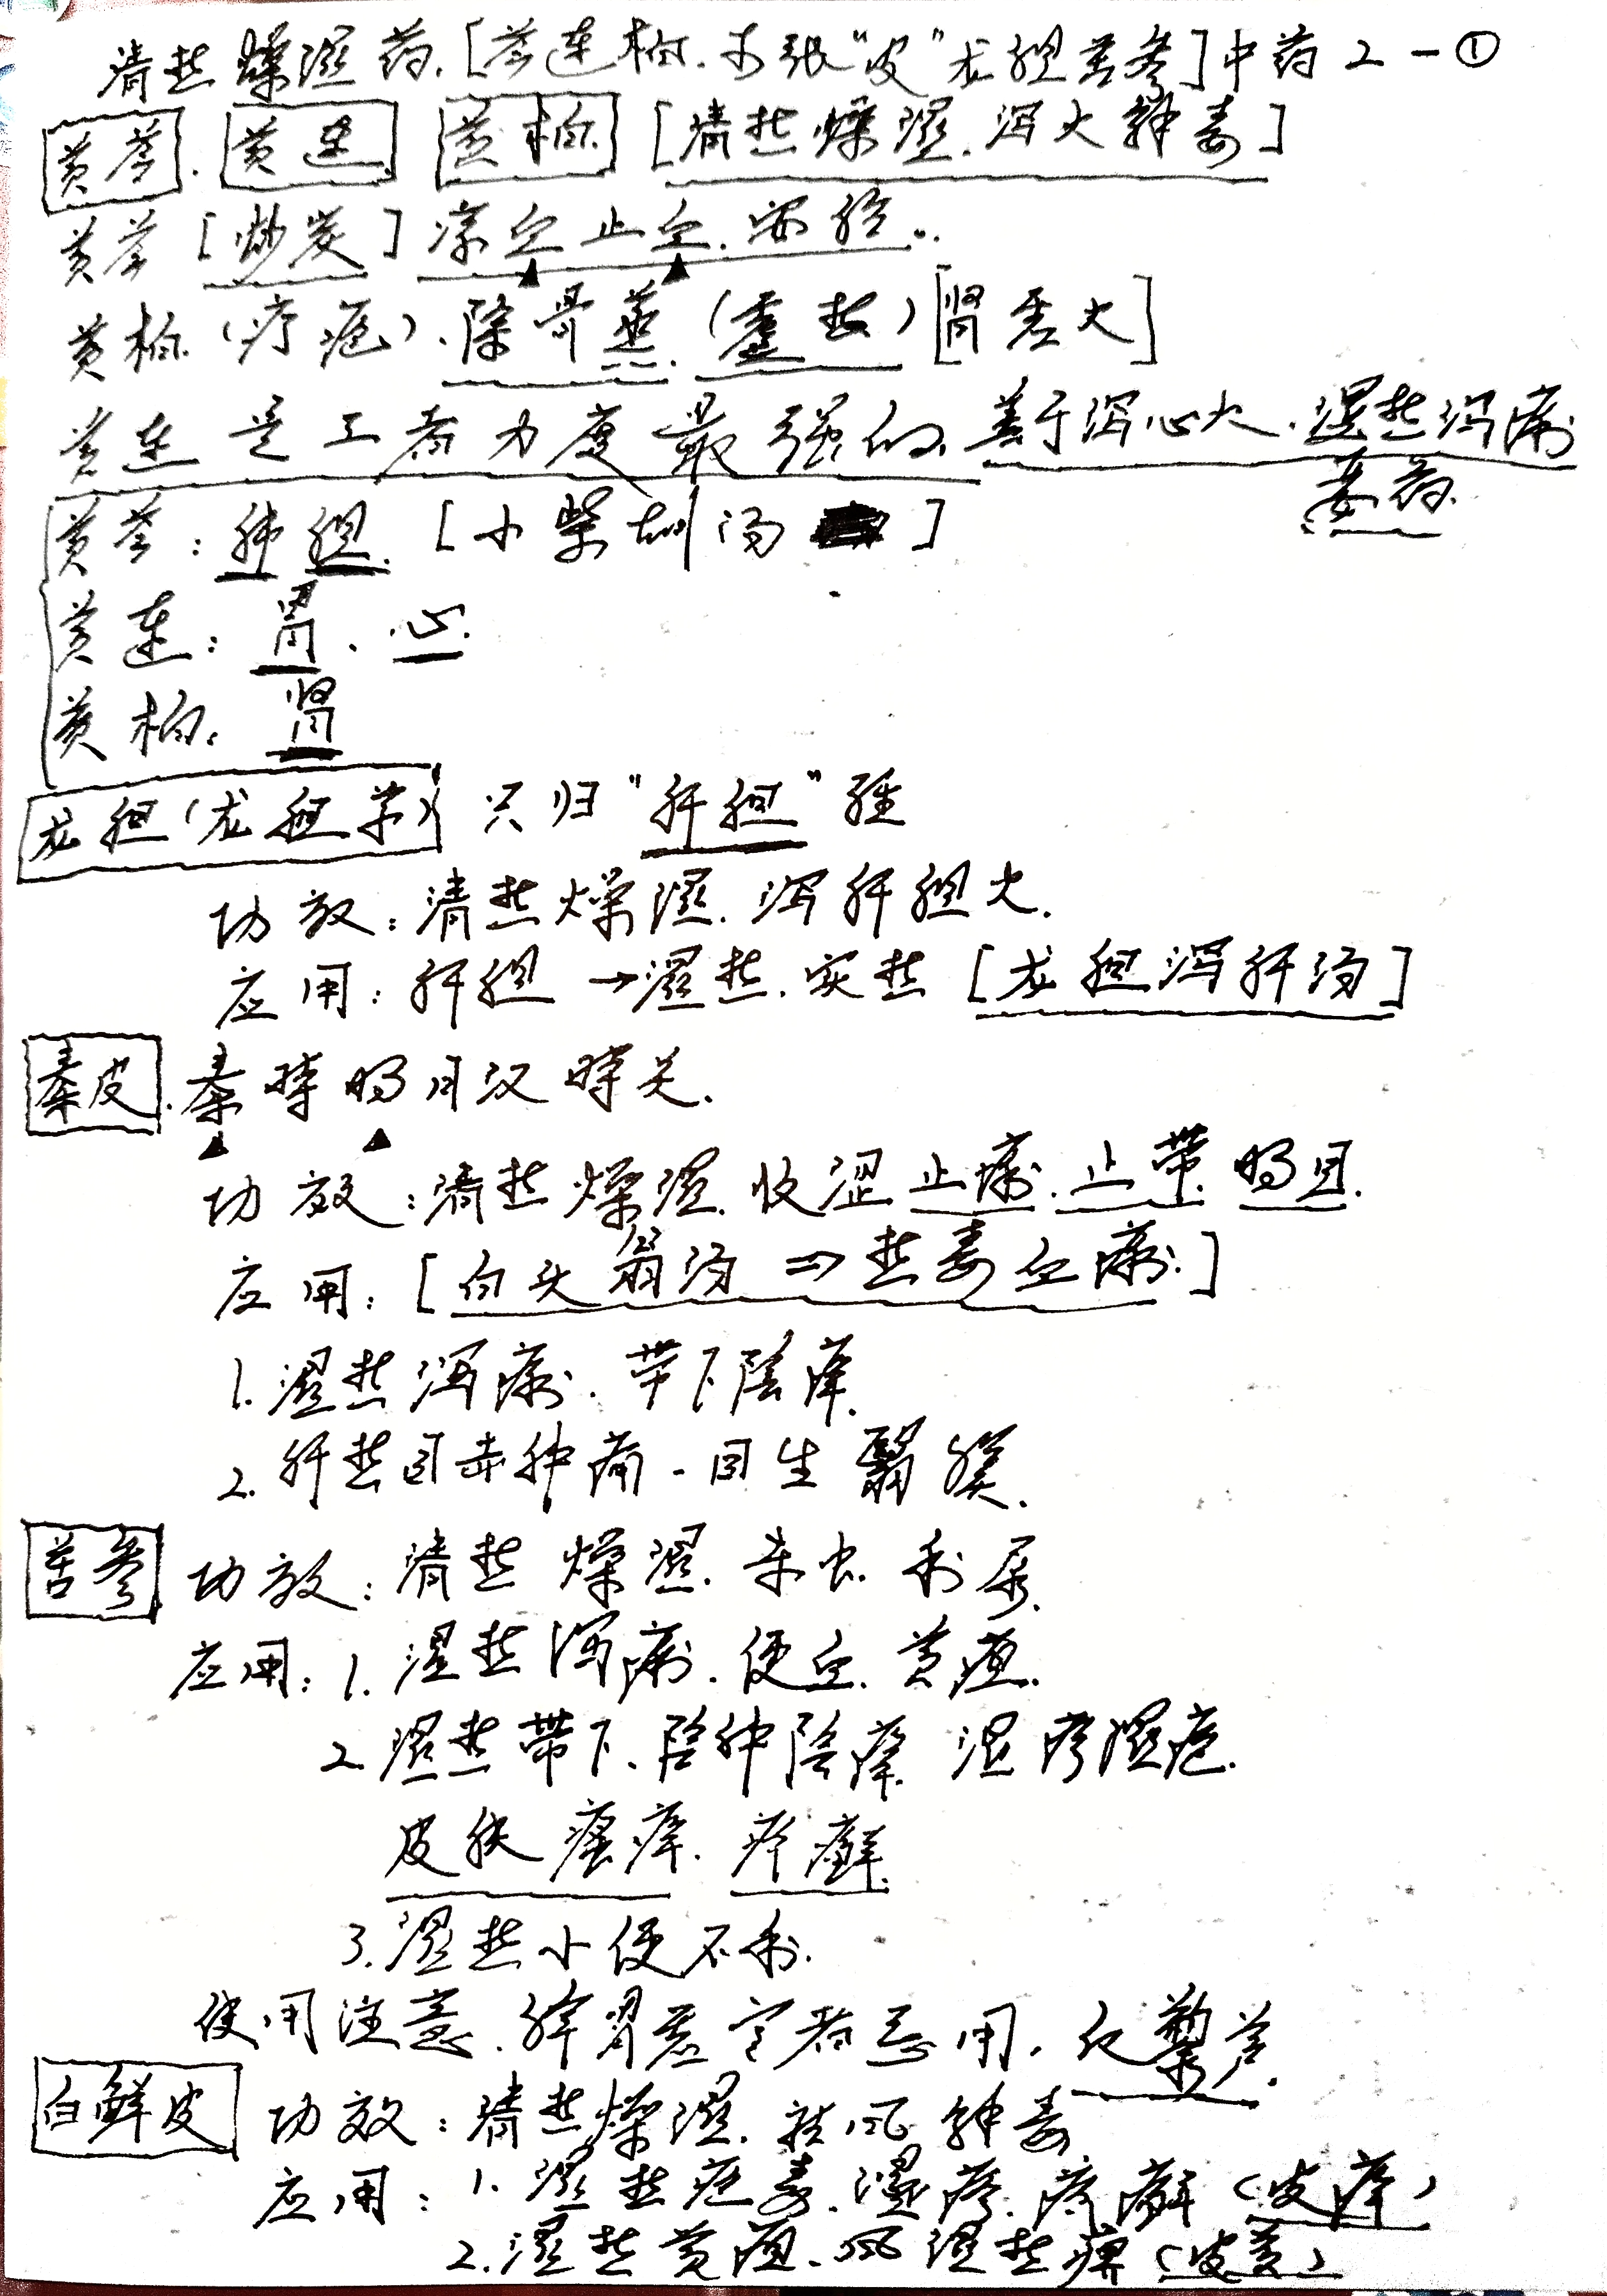 清热燥湿药.[芩连柏.两张"皮"龙胆苦参]中药2-①
黄芩.黄连 黄柏[清热燥湿.泻火解毒]
黄芩[炒炭]凉血止血.安胎..
黄柏(疗疮).除骨蒸.(虚热)[肾虚火]
黄连是三者力度最强的.善于泻心火.湿热泻痢
要药.
黄芩:肺胆.[小柴胡汤]
黄连:胃.心.
黄柏:肾
龙胆(龙胆草)只归"肝胆"经
功效:清热燥湿.泻肝胆火.
应用:肝胆→湿热.实热[龙胆泻肝汤]
秦皮.秦時明月汉時关.
功效:清热燥湿.收涩止痢.止带.明目.
应用:[白头翁汤⇒热毒血痢.]
1.湿热泻痢.带下陰痒.
2.肝热目赤肿痛-目生翳膜.
苦参 功效:清热燥湿.杀虫.利尿.
应用:1.湿热泻痢.便血.黄疸.
2.湿热带下.陰肿陰痒.湿疹湿疮.
皮肤瘙痒.疥癣.
3.湿热小便不利.
使用注意.脾胃虚寒者忌用.反藜芦.
白鲜皮 功效:清热燥湿.祛风解毒
应用:1.湿热疮毒.湿疹.疥癣(皮痒)
2.湿热黄疸.风湿热痹(皮黄)